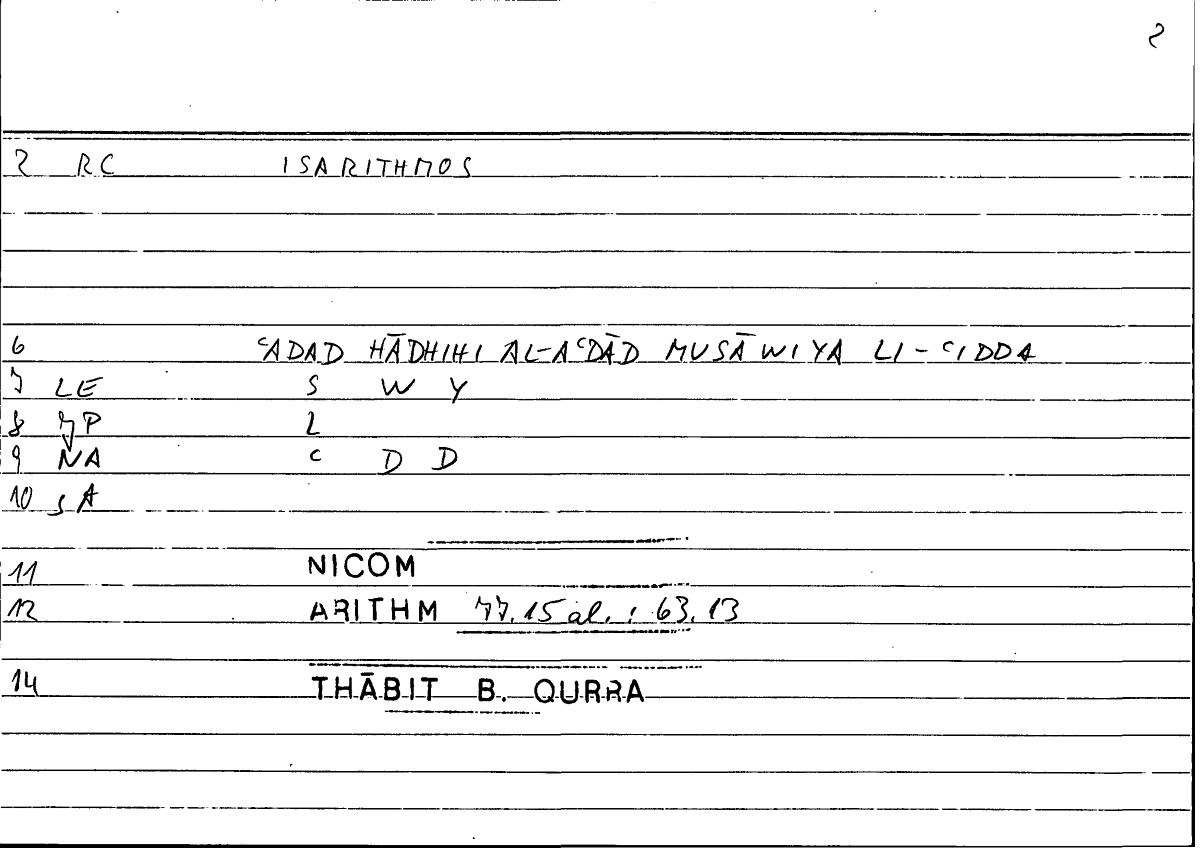 2
2 RC ISARITHMOS
6 ᶜADAD HĀDHIHI AL-AᶜDĀD MUSĀWIYA LI-ᶜIDDA
7 LE S W Y
8 JP L
9 NA ᶜ D D
10 SA
11 NICOM
12 ARITHM 77.15 al. : 63.13
14 THĀBIT B. QURRA